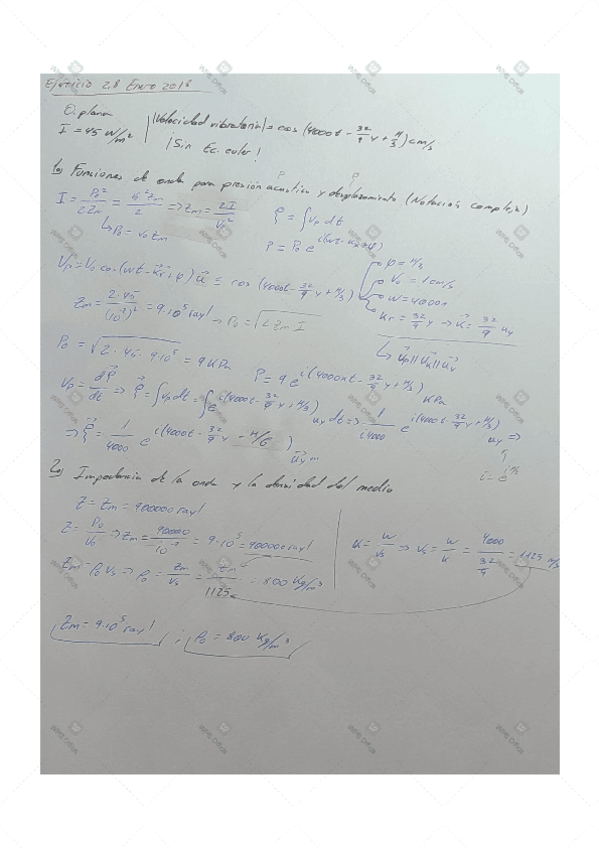 Ejercicio 2.8 Enero 2018
O. plana
I = 45 W/m²
|Velocidad vibratoria| = cos (4000t - 32/9 y + π/3) cm/s
¡Sin Ec. euler!
1o) Funciones de onda para presión acústica y desplazamiento (Notación compleja)
I = P₀²/2Zm = V₀² Zm/2 => Zm = 2I/V₀²
↳ P₀ = V₀ Zm
ξ = ∫ Vp dt
P = P₀ e^i(wt - kx + φ)
Vp = V₀ cos (wt - kr + φ) u ≤ cos (4000t - 32/9 y + π/3)
φ = π/3
V₀ = 1 cm/s
kr = 32/9 y => k = 32/9 uy
Zm = 2·45/(10⁻²)² = 9·10⁵ rayl => P₀ = √2 Zm I
P₀ = √2·45·9·10⁵ = 9 KPa
P = 9 e^i(4000πt - 32/9 y + π/3) KPa
Vp = dξ/dt => ξ = ∫ Vp dt = ∫ e^i(4000t - 32/9 y + π/3) uy dt => 1/i4000 e^i(4000t - 32/9 y + π/3) uy =>
=> ξ = 1/4000 e^i(4000t - 32/9 y - π/6) uy m
2o) Impedancia de la onda y la densidad del medio
Z = Zm = 900000 rayl
Z = P₀/V₀ => Zm = 90000/10⁻² = 9·10⁵ = 900000 rayl
K = w/Vs => Vs = w/k = 4000/(32/9) = 1125 m/s
Zm = ρ₀ Vs => ρ₀ = Zm/Vs = Zm/1125 = 800 Kg/m³
Zm = 9·10⁵ rayl ; ρ₀ = 800 Kg/m³
WPS Office